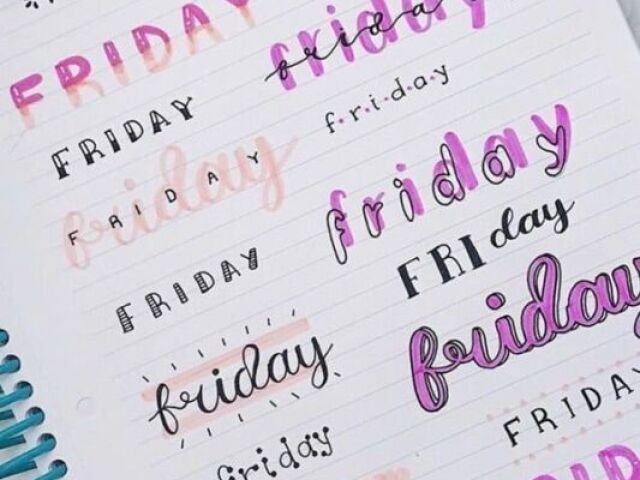 FRIDAY
friday
friday
FRIDAY
f.r.i.d.a.y
friday
FRIDAY
friday
FRIday
FRIDAY
friday
friday
FRIDAY
friday